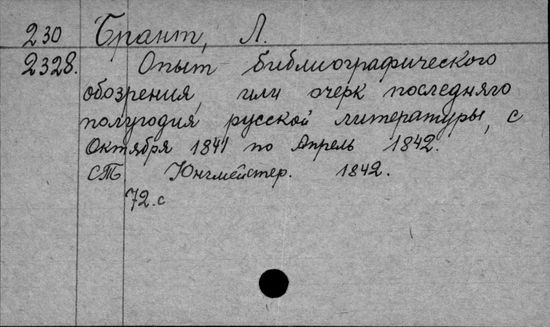 230 Брант, Л.
2328. Опыт библиографического
обозрения, или очерк последняго
полугодия русской литературы, с
Октября 1841 по Апрель 1842.
СТБ Юнгмейстер. 1842.
72.с